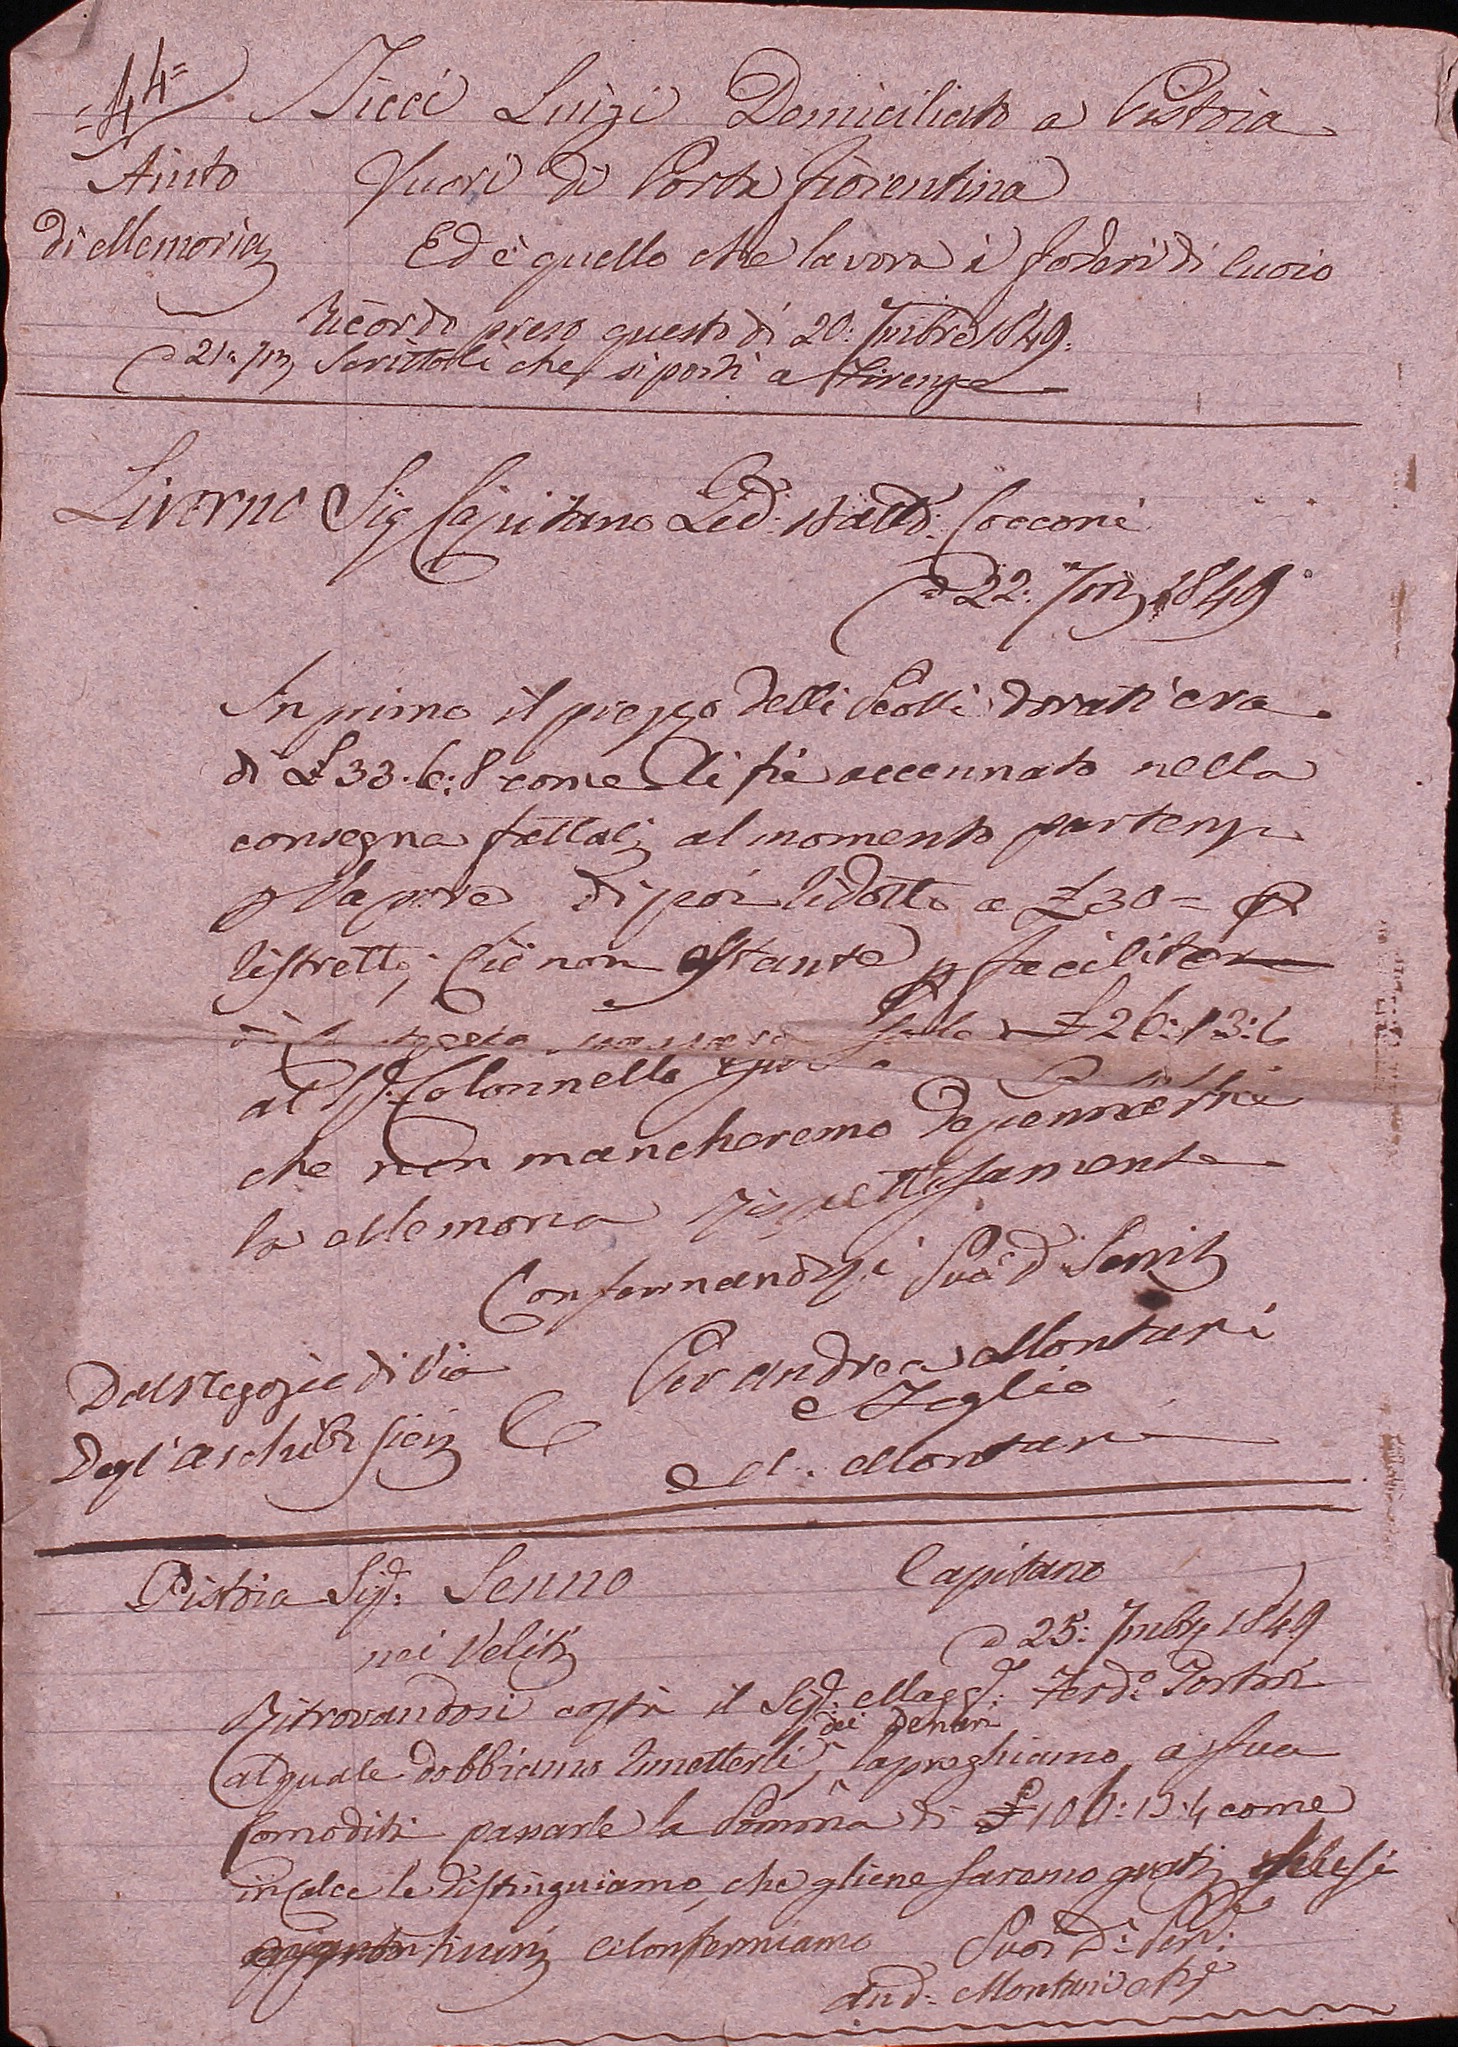 =44=
Aiuto
di Memoria
Ricci Luigi Domiciliato a Pistoia
Fuori di Porta fiorentina
Ed è quello che lavora i foderi di cuoio
Ricordo preso questo dì 20: 7mbre 1849:
a 21: 7m Scrittoli che si porti a Firenze
Livorno Sig Capitano Batt: Cocconi
a 22: 7m 1849
In primo il prezzo delli Scolli dorati era
di £33:6:8 come li fù accennato nella
consegna fattali al momento partenza
p Vapore, di poi lidotto a £30=
listretto; Ciò non ostante p facilitare
£26:13:6
al Sig: Colonnello
che non mancheremo
la Memoria Rispettosamente
Confermandosi Suoi d: Servi
Per Andrea Montari
e Figlio
Montari
Dal Negozio di Via
Degl' Archibusieri
Pistoia Sig: Senno Capitano
nei Veliti a 25: 7mbre 1849
Ritrovandosi costì il Sig: Magg: Ferdo Tortori
al quale dobbiamo limetterli dei denari, la preghiamo a sua
Comodità passarle la Somma di £106:13:4 come
in Calce le distinguiamo, che gliene saremo grati
ci Confermiamo Suoi D: Ser:
And: Montari